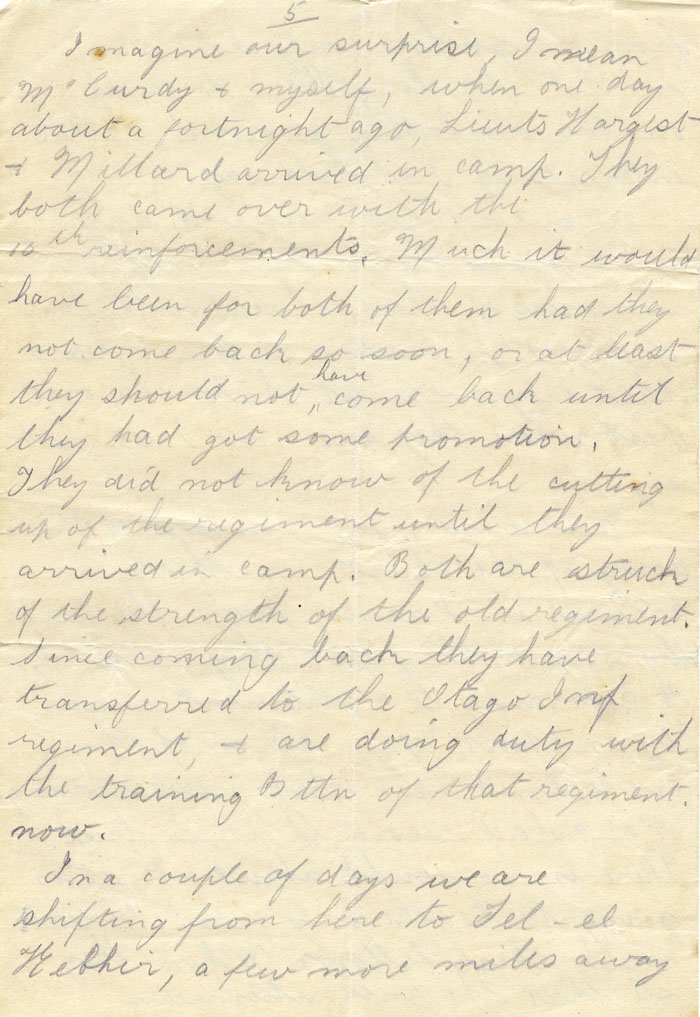 5
Imagine our surprise, I mean
McCurdy & myself, when one day
about a fortnight ago, Lieuts Hargest
& Millard arrived in camp. They
both came over with the
10th reinforcements. Much it would
have been for both of them had they
not come back so soon, or at least
they should not have come back until
they had got some promotion.
They did not know of the cutting
up of the regiment until they
arrived in camp. Both are struck
of the strength of the old regiment.
Since coming back they have
transferred to the Otago Inf
regiment, & are doing duty with
the training Bttn of that regiment.
now.
In a couple of days we are
shifting from here to Tel-el
Kebhir, a few more miles away